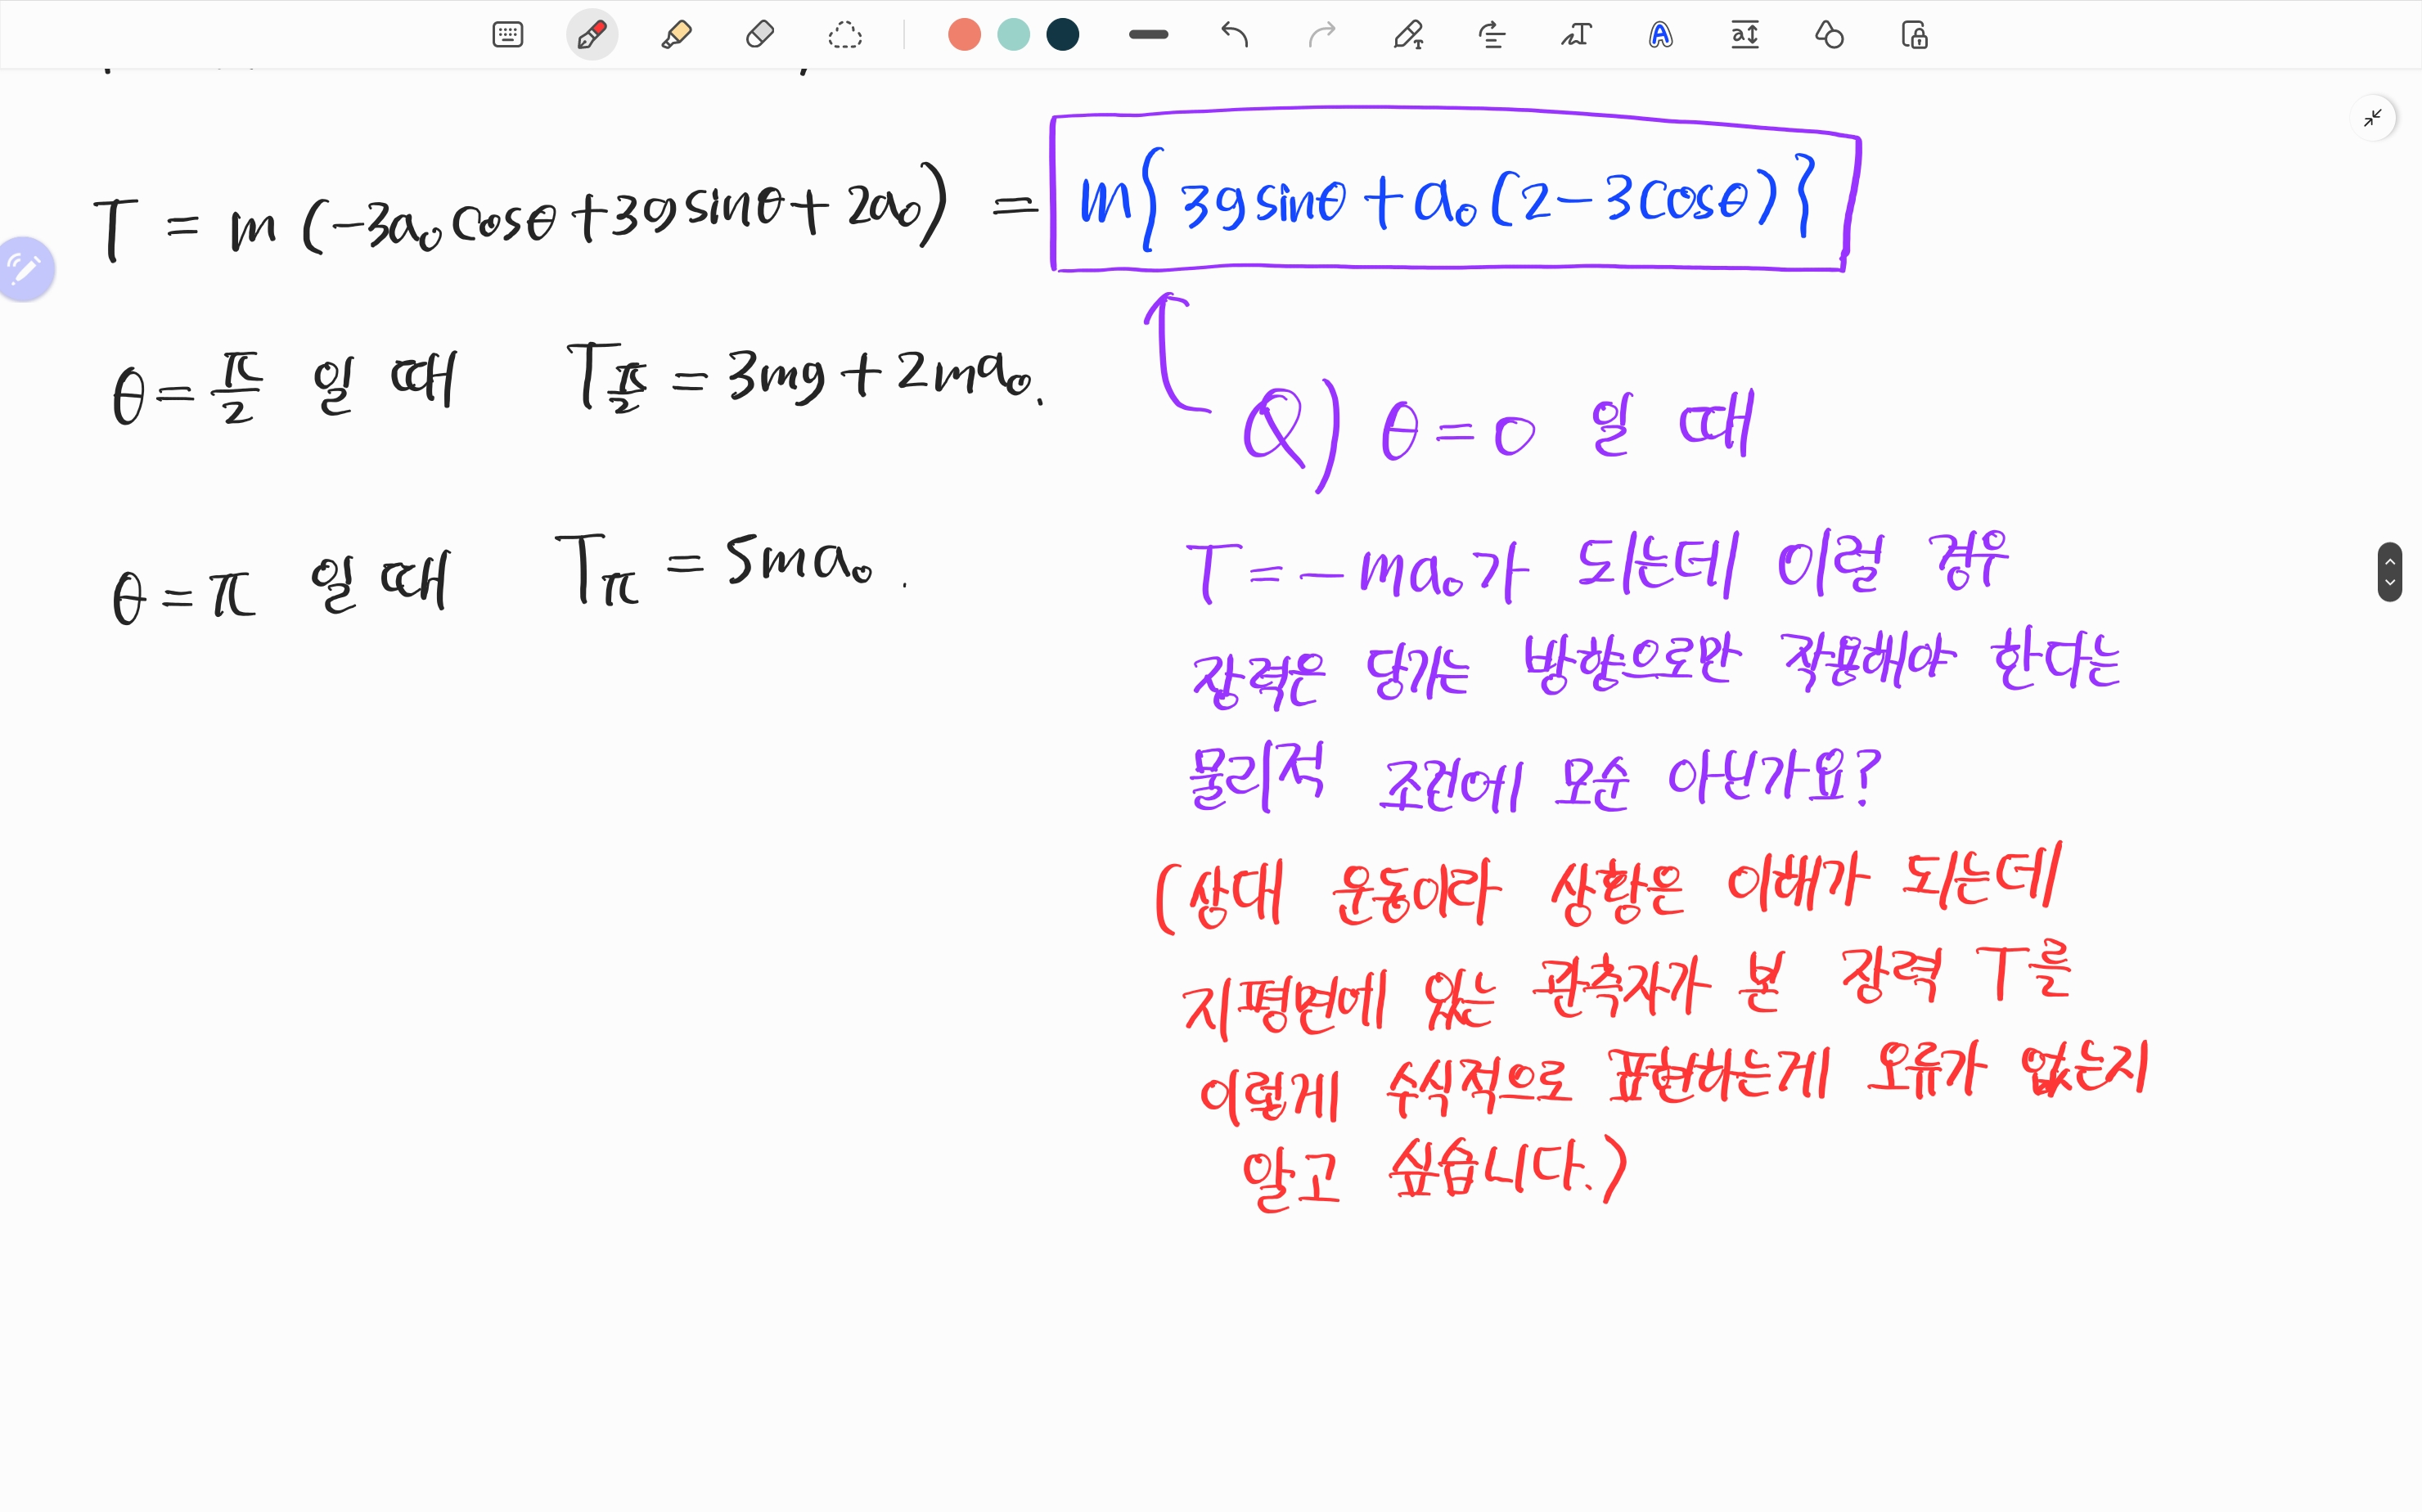 T = m (-3a₀cosθ+3gsinθ+2a₀) = m{3gsinθ+a₀(2-3cosθ)}
θ=π/2 일 때 T_π/2 = 3mg+2ma₀.
Q) θ=0 일 때
θ=π 일 때 T_π = 5ma₀.
T=-ma₀가 되는데 이럴 경우
장력은 당기는 방향으로만 작용해야 한다는
물리적 조건에 모순 아닌가요?
(상대 운동이라 상황은 이해가 되는데
지평면에 있는 관측자가 본 장력 T를
어떻게 수식적으로 표현하는게 오류가 없는지
알고 싶습니다.)